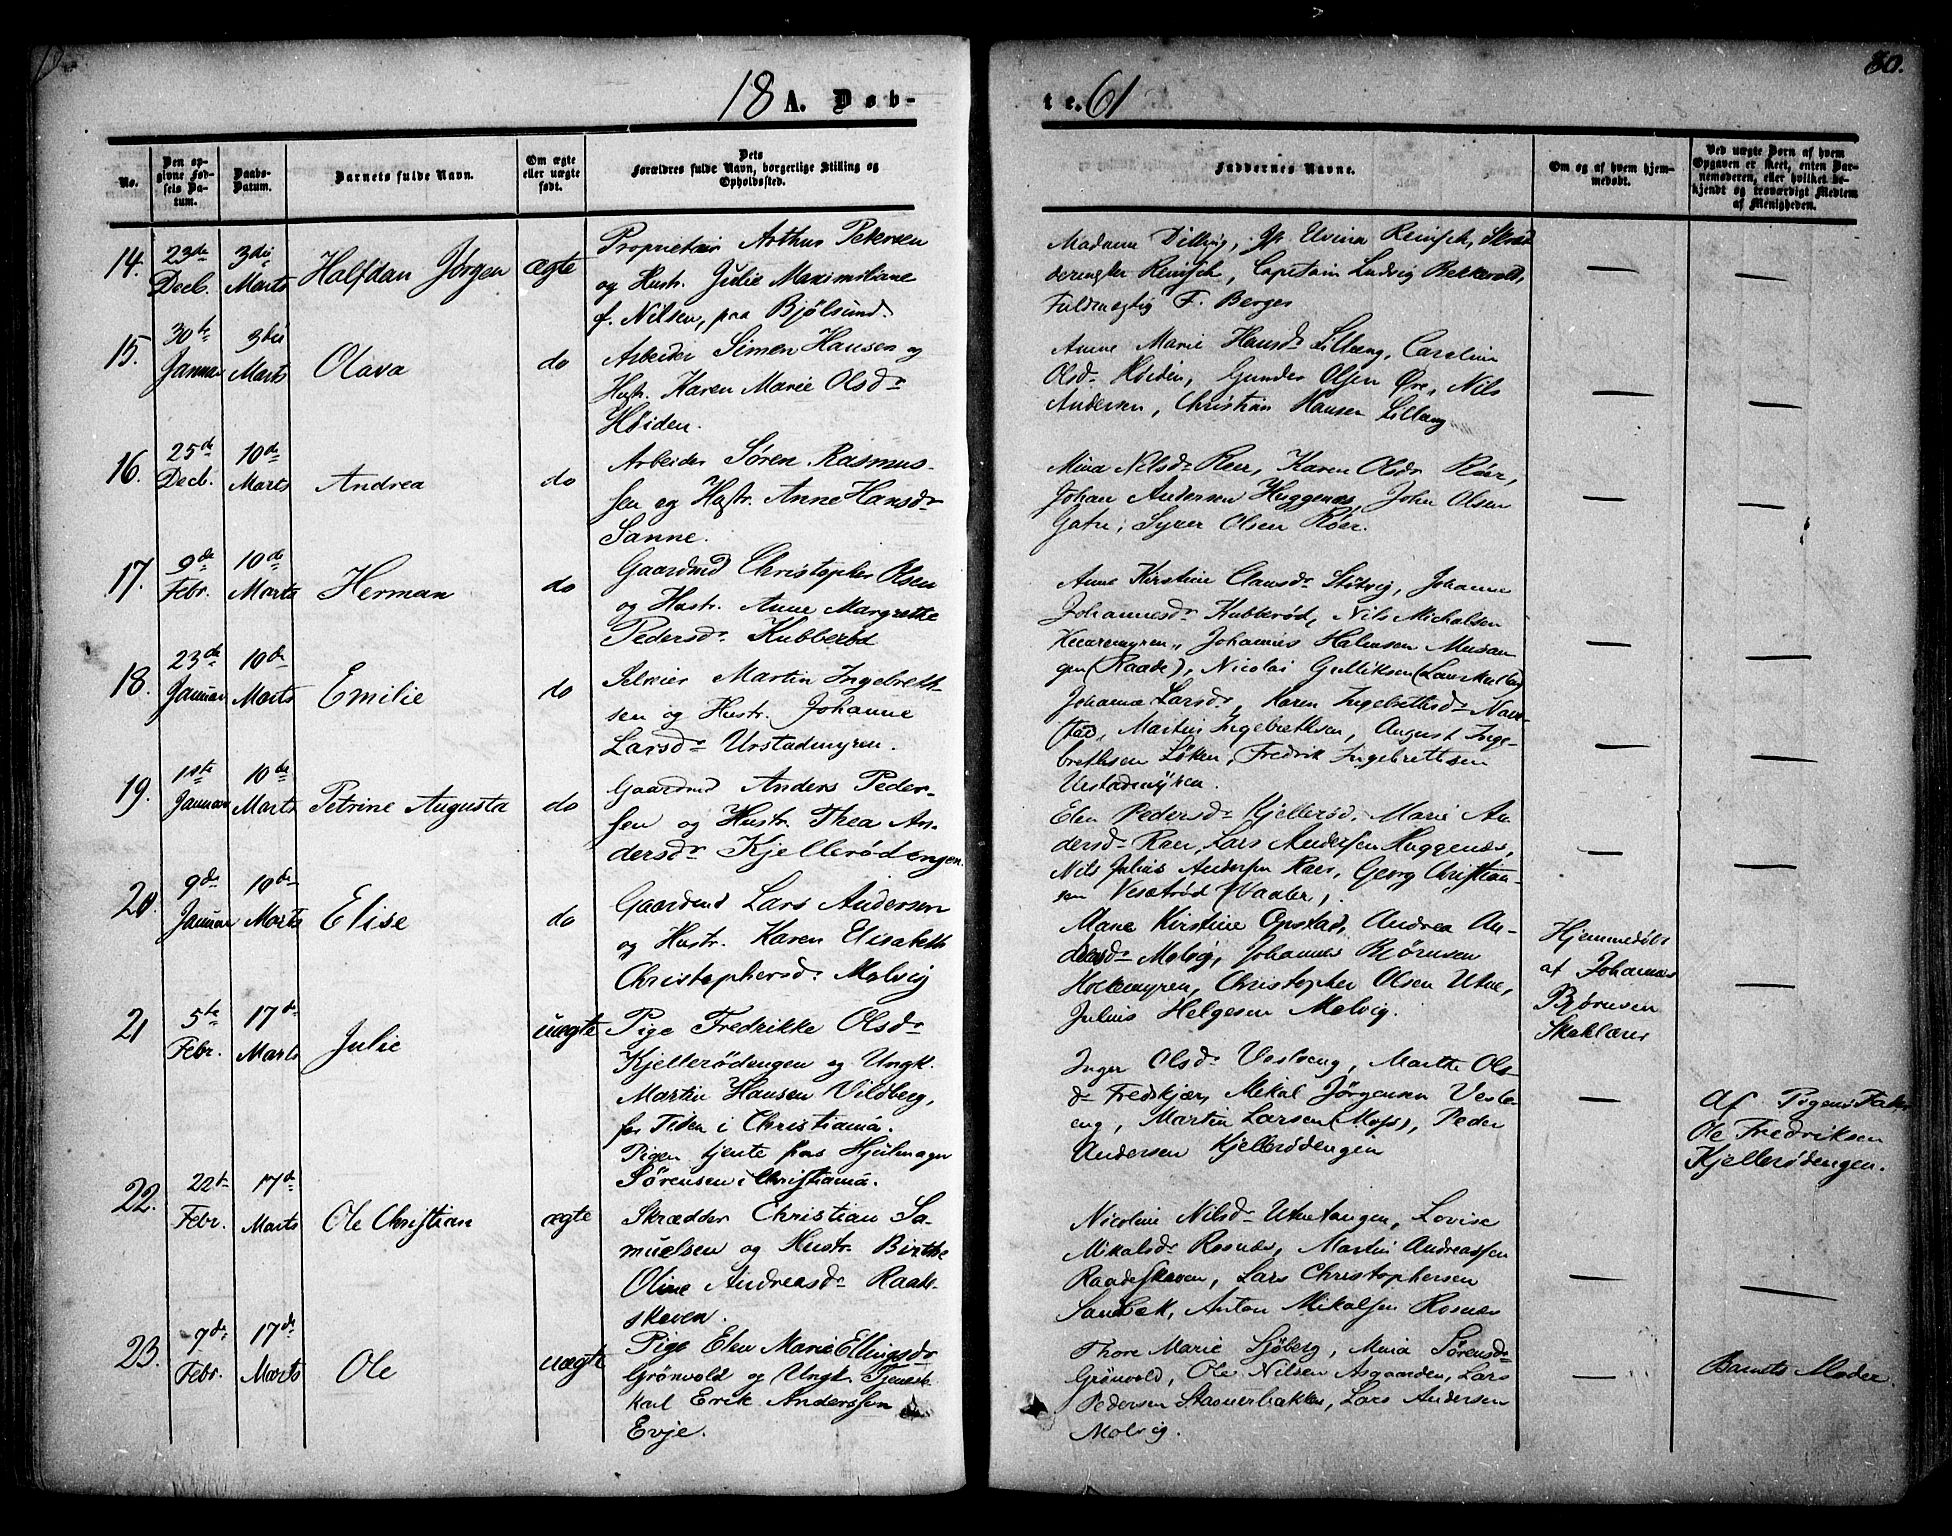 80.
18 A. Døb-
te. 61
No.
Den op-
givne Fød-
sels Da-
tum.
Daabs-
Datum.
Barnets fulde Navn.
Om ægte
eller uægte
født.
Dets
Forældres fulde Navn, borgerlige Stilling og
Opholdssted.
Faddernes Navne.
Om og af hvem hjem-
medøbt.
Ved uægte Børn af hvem
Opgaven er skeet, enten Bar-
nemoderen, eller hvilket be-
kjendt og troværdigt Medlem
af Menigheden.
14.
23de
Decb.
3die
Marts
Halfdan Jørgen
ægte
Proprietair Arthur Petersen
og Hustr. Julie Maximiliane
f. Nilsen, paa Bjølsund.
Madame Dilling, Jfr. Elvina Reinsch,
Reinsch, Capitain Ludvig Bekkevold,
Fuldmægtig F. Berger
—
—
15.
30te
Januar
3die
Marts
Olava
do
Arbeider Simen Hansen og
Hustr. Karen Marie Olsdr
Høiden.
Anne Marie Hansdr Lillæng, Caroline
Olsdr Høiden, Gunder Olsen Øre, Nils
Andersen, Christian Hansen Lillæng
—
—
16.
25de
Decb.
10de
Marts
Andrea
do
Arbeider Søren Rasmus-
sen og Hustr. Anne Hansdr
Sanne.
Mina Nilsdr Roer, Karen Olsdr Röer,
Johan Andersen Huggenæs, John Olsen
Gatu, Syver Olsen Röer.
—
—
17.
9de
Febr.
10de
Marts
Herman
do
Gaardmd Christopher Olsen
og Hustr. Anne Margrethe
Pedersdr Kubberød
Anne Kirstine Clausdr Støtvig, Johanne
Johannesdr Kubberød, Nils Michalsen
Kværnmyren, Johannes Halvorsen Musan-
gen (Raade), Nicolai Gulliksen
—
—
18.
23de
Januar
10de
Marts
Emilie
do
Selveier Martin Ingebreth-
sen og Hustr. Johanne
Larsdr Urstadmyren.
Johanna Larsdr, Karen Ingebrethsdr Nav-
stad, Martin Ingebrethsen, August Inge-
brethsen Løken, Fredrik Ingebrethsen
Urstadmyren.
—
—
19.
1ste
Januar
10de
Marts
Petrine Augusta
do
Gaardmd Anders Peder-
sen og Hustr. Thea An-
dersdr Kjellerødengen.
Elen Pedersdr Kjellerød, Marie An-
dersdr Roer, Lars Andersen Huggenæs,
Nils Julius Andersen Roer, Georg Christian-
sen Vesetrød (Vaaler),
—
—
20.
9de
Januar
10de
Marts
Elise
do
Gaardmd Lars Andersen
og Hustr. Karen Elisabeth
Christophersdr Molvig
Mare Kirstine Opstad, Andrea An-
dersdr Molvig, Johannes Bjørnsen
Holtemyren, Christopher Olsen Utne,
Julius Helgesen Molvig.
Hjemmedøbt
af Johannes
Bjørnsen
Skolelærer
—
21
5te
Febr.
17de
Marts
Julie
uægte
Pige Fredrikke Olsdr
Kjellerødengen og Ungk.
Martin Hansen Vildberg,
for Tiden i Christiania.
Pigen tjente hos Hjulmager
Sörensen i Christiania.
Inger Olsdr Vesleeng, Marthe Ols-
dr Fredskjær, Mekal Jörgensen Vesle-
eng, Martin Larsen (Moss), Peder
Andersen Kjellerødengen
—
Af Pigens Fader
Ole Fredriksen
Kjellerødengen.
22.
22de
Febr.
17de
Marts
Ole Christian
ægte
Skrædder Christian Sa-
muelsen og Hustr. Birthe
Oline Andreasdr Raade-
skoven.
Nicoline Nilsdr Utnetangen, Lovise
Mikalsdr Rosnæs, Martin Andreassen
Raadeskoven, Lars Christophersen
Sandbæk, Anton Mikalsen Rosnæs
—
—
23.
7de
Febr.
17de
Marts
Ole
uægte
Pige Elen Marie Ellingsdr
Grönvold og Ungk. Tjeneste-
karl Erik Anderssen
Evje.
Thore Marie Sjöberg, Mina Sörensdr
Grönvold, Ole Nilsen Asgaarden, Lars
Pedersen Stasnerbakken, Lars Andersen
Molvig.
—
Barnets Moder.